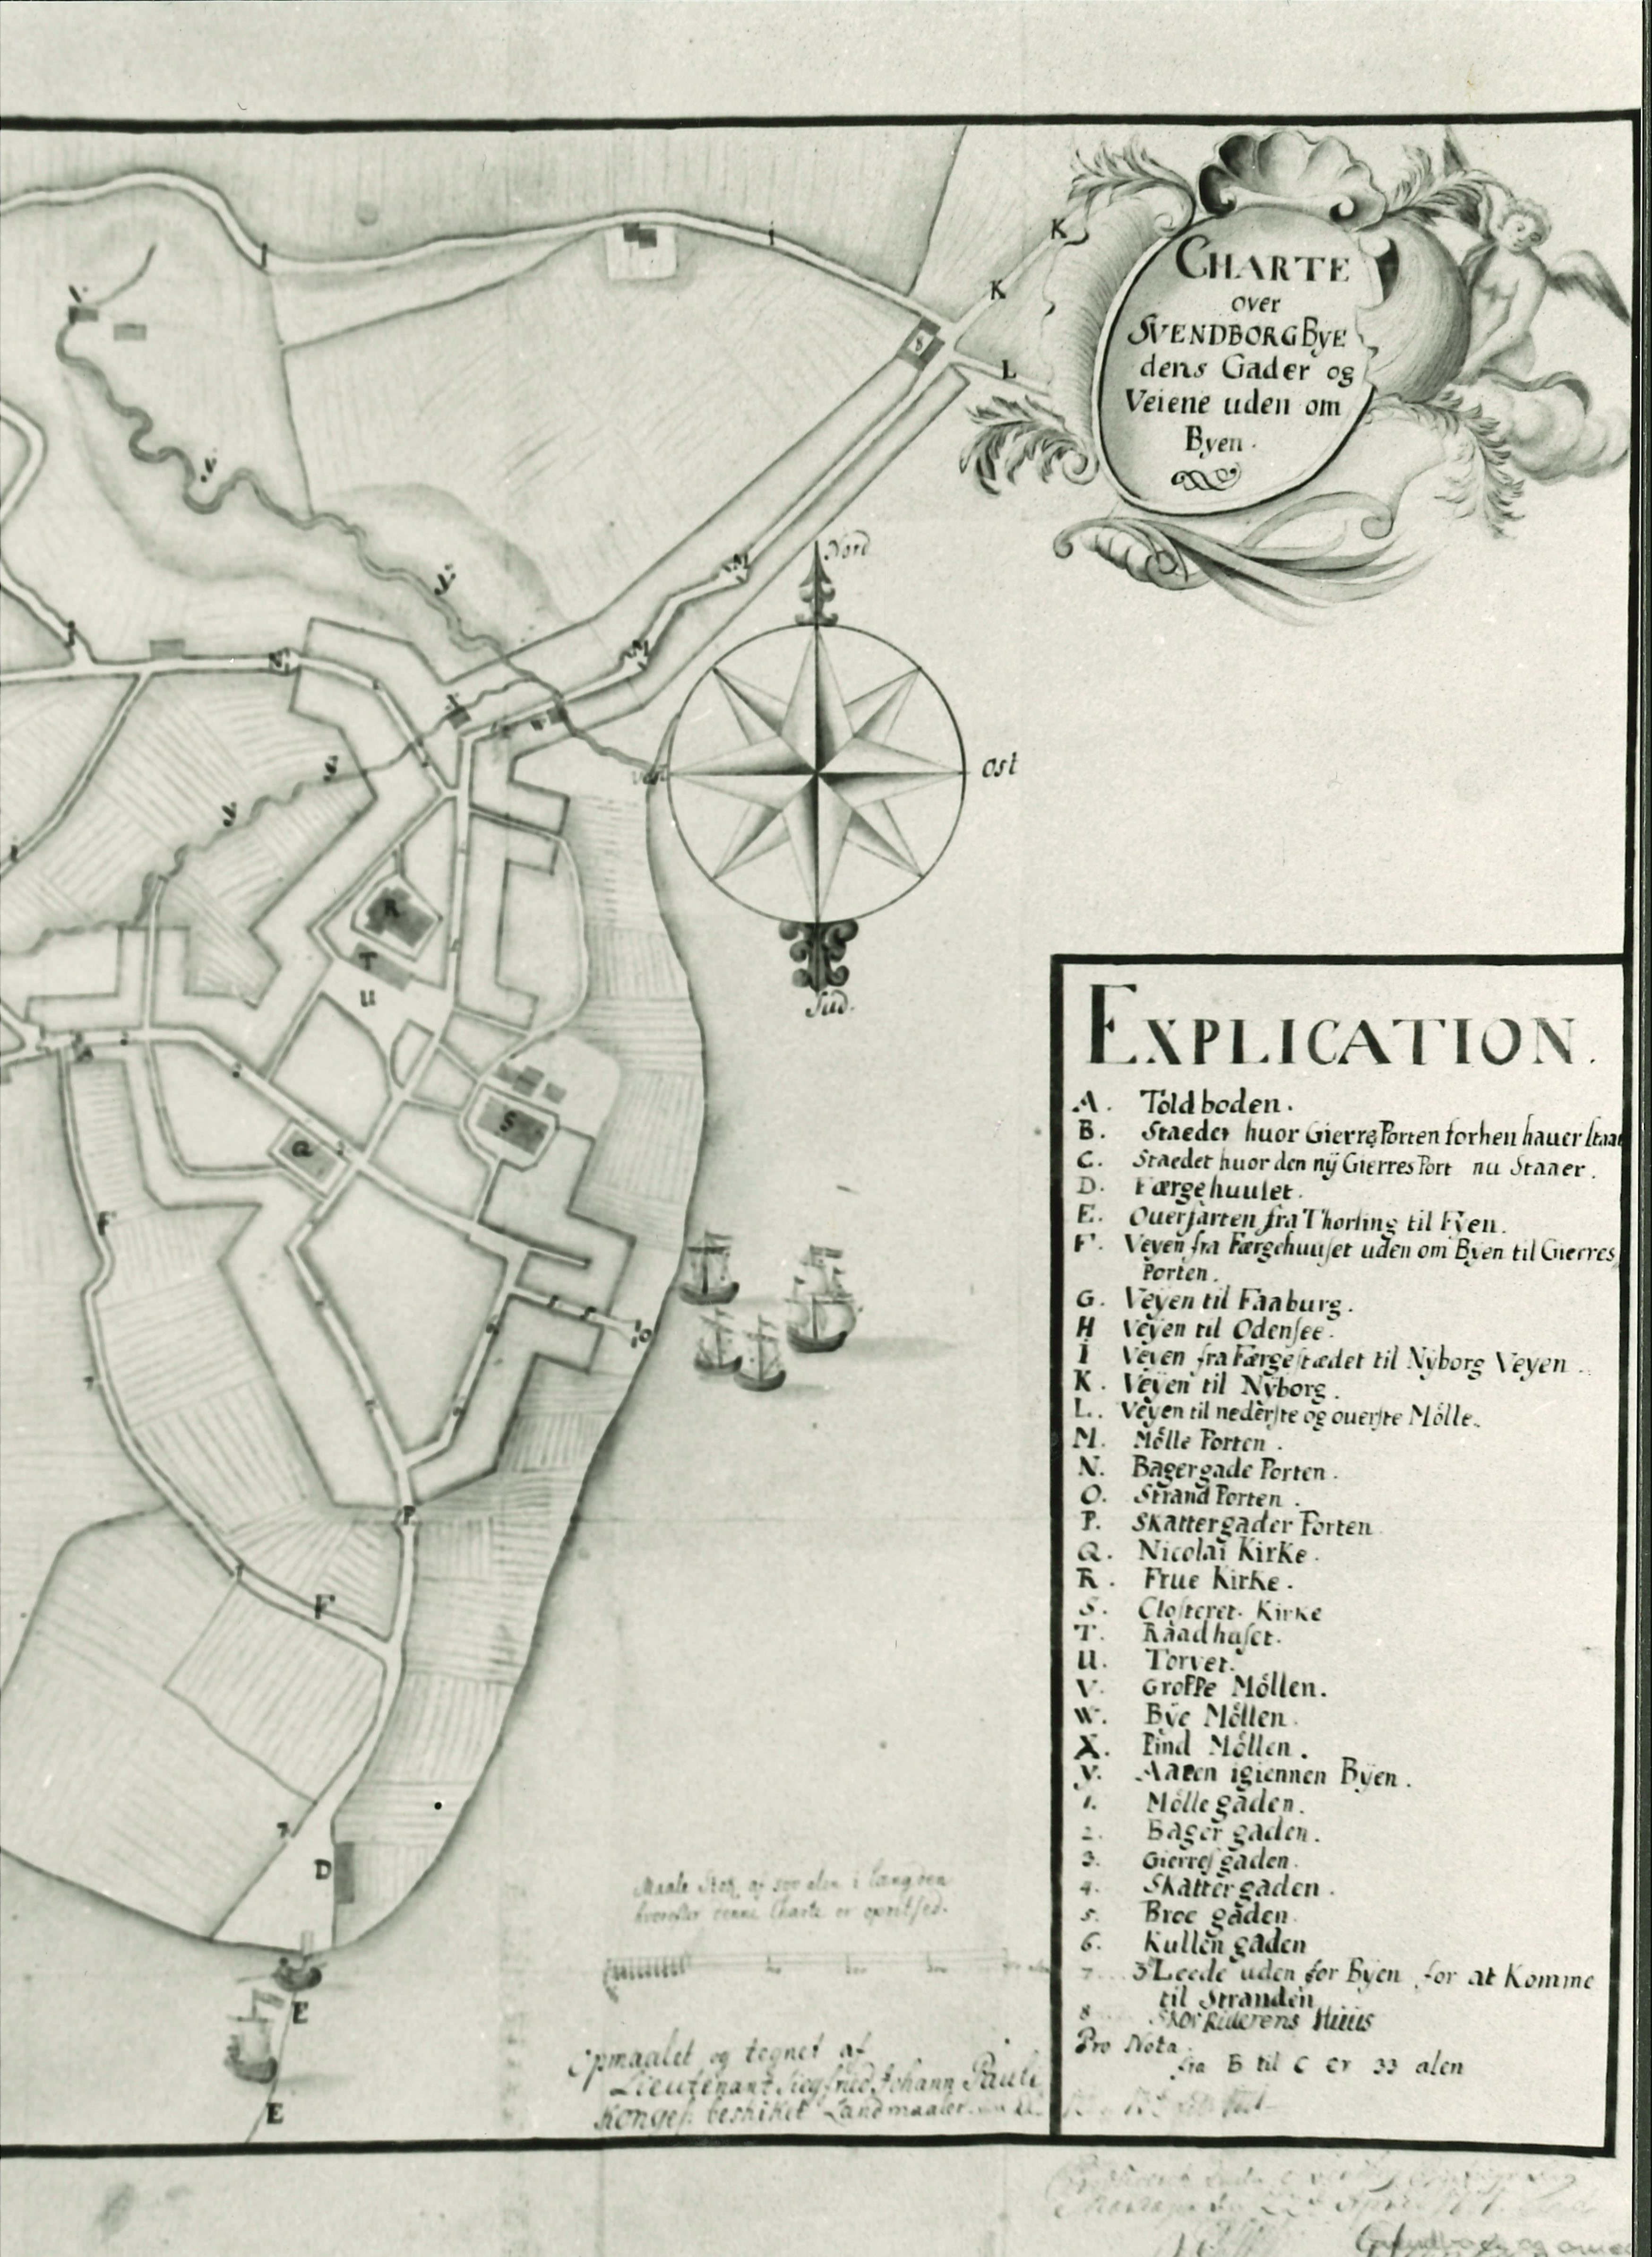 CHARTE
over
SVENDBORG Bye
dens Gader og
Veiene uden om
Byen.
Nord
Ost
Sud.
EXPLICATION.
A. Toldboden.
B. Staedet huor Gierres Porten forhen hauer Staa
C. Staedet huor den nÿ Gierres Port nu Staaer.
D. Færgehuuset.
E. Ouerfarten fra Thorsing til Fÿen.
F. Veyen fra Færgehuuset uden om Bÿen til Gierres
Porten.
G. Veÿen til Faaburg.
H Veÿen til Odensee.
I Veyen fra Færgestædet til Nÿborg Veyen.
K. Veÿen til Nÿborg.
L. Veÿen til nederste og ouerste Mölle.
M. Mölle Porten.
N. Bagergade Porten.
O. Strand Porten.
P. Skattergader Porten
Q. Nicolai Kirke.
R. Frue Kirke.
S. Closteret. Kirke
T. Raadhuset.
U. Torvet.
V. Möllen.
W. Bÿe Möllen.
X. Pind Möllen.
Y. Aaeen igiennen Bÿen.
1. Möllegaden.
2. Bager gaden.
3. Gierresgaden.
4. Skattergaden.
5. Broe gaden.
6. Kullen gaden
7... 3 Leede uden for Bÿen for at Komme
til Stranden
8 Huus
Pro Nota.
fra B til C er 33 alen
Maale Stok af alen i længden
hvorefter denne Charte er
Opmaalet og tegnet af
Lieutenant Siegfried Johann Pauli
Konges. beskiket Landmaaler.